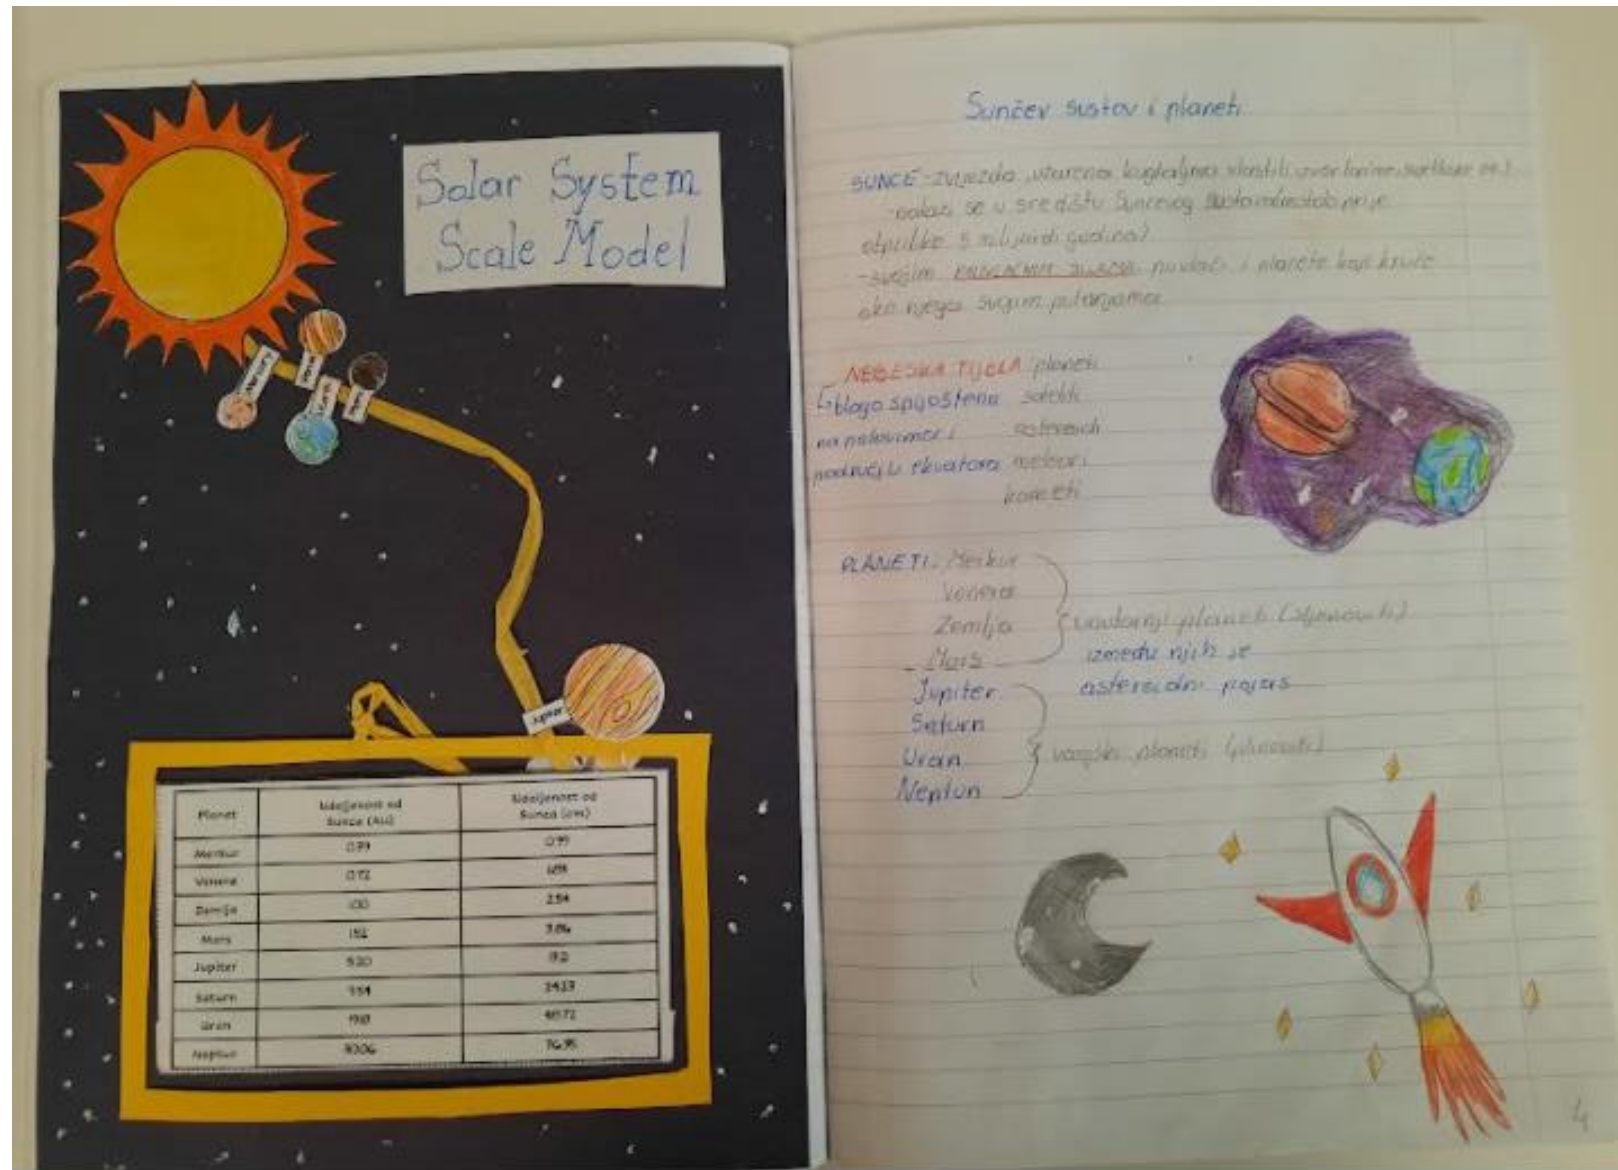 Solar System
Scale Model
Mercury
Jupiter
Planet Udaljenost od Sunca (AU) Udaljenost od Sunca (cm)
Merkur 0.39 0.99
Venera 0.72 1.83
Zemlja 1.00 2.54
Mars 1.52 3.86
Jupiter 5.20
Saturn 9.54 24.23
Uran 48.72
Neptun 30.06 76.35
Sunčev sustav i planeti
SUNCE - zvijezda, užarena kugla
se u središtu Sunčevog
otprilike 5 milijardi godina)
- svojim privlači i planete koji kruže
oko njega svojim putanjama
NEBESKA TIJELA planeti
blago spljoštena sateliti
na polovima i asteroidi
području ekvatora meteori
kometi
PLANETI: Merkur
Venera
Zemlja unutarnji planeti (stjenoviti)
Mars između njih je
Jupiter asteroidni pojas
Saturn
Uran vanjski planeti (plinoviti)
Neptun
4